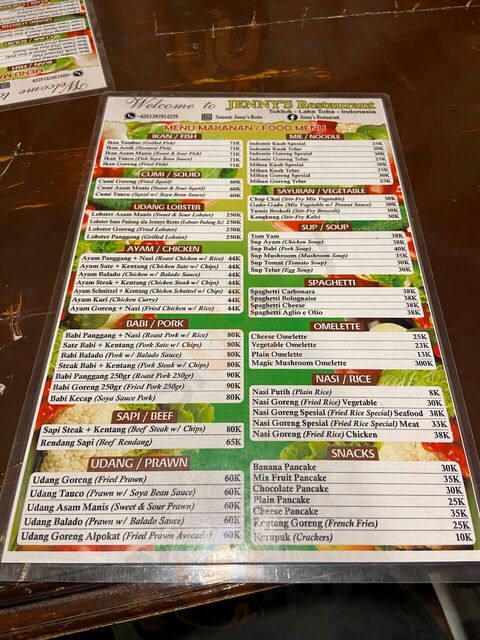 Welcome to JENNY'S Restaurant
Tuktuk - Lake Toba - Indonesia
+6281397914229
Samosir Jenny's Resto
Jenny's Restaurant
MENU MAKANAN / FOOD MENU
IKAN / FISH
Ikan Tombur (Grilled Fish) 71K
Ikan Arsik (Steamed Fish) 71K
Ikan Asam Manis (Sweet & Sour Fish) 71K
Ikan Tauco (Fish Soya Bean Sauce) 71K
Ikan Goreng (Fried Fish) 71K
CUMI / SQUID
Cumi Goreng (Fried Squid) 60K
Cumi Asam Manis (Sweet & Sour Squid) 60K
Cumi Tauco (Squid w/ Soya Bean Sauce) 60K
UDANG LOBSTER
Lobster Asam Manis (Sweet & Sour Lobster) 250K
Lobster Saus Padang ala Jennys Resto (Lobster Padang Sc) 250K
Lobster Goreng (Fried Lobster) 250K
Lobster Panggang (Grilled Lobster) 250K
AYAM / CHICKEN
Ayam Panggang + Nasi (Roast Chicken w/ Rice) 44K
Ayam Sate + Kentang (Chicken Sate w/ Chips) 44K
Ayam Balado (Chicken w/ Balado Sauce) 44K
Ayam Steak + Kentang (Chicken Steak w/ Chips) 44K
Ayam Schnitzel + Kentang (Chicken Schnitzel w/ Chips) 44K
Ayam Kari (Chicken Curry) 44K
Ayam Goreng + Nasi (Fried Chicken w/ Rice) 44K
BABI / PORK
Babi Panggang + Nasi (Roast Pork w/ Rice) 80K
Sate Babi + Kentang (Pork Sate w/ Chips) 80K
Babi Balado (Pork w/ Balado Sauce) 80K
Steak Babi + Kentang (Pork Steak w/ Chips) 80K
Babi Panggang 250gr (Roast Pork 250gr) 80K
Babi Goreng 250gr (Fried Pork 250gr) 90K
Babi Kecap (Soya Sauce Pork) 80K
SAPI / BEEF
Sapi Steak + Kentang (Beef Steak w/ Chips) 80K
Rendang Sapi (Beef Rendang) 65K
UDANG / PRAWN
Udang Goreng (Fried Prawn) 60K
Udang Tauco (Prawn w/ Soya Bean Sauce) 60K
Udang Asam Manis (Sweet & Sour Prawn) 60K
Udang Balado (Prawn w/ Balado Sauce) 60K
Udang Goreng Alpokat (Fried Prawn Avocado) 60K
MIE / NOODLE
Indomie Kuah Spesial 25K
Indomie Kuah Telur
Indomie Goreng Spesial
Indomie Goreng Telur
Mihun Kuah Spesial
Mihun Kuah Telur
Mihun Goreng Spesial
Mihun Goreng Telur 25K
SAYURAN / VEGETABLE
Chap Chai (Stir-Fry Mix Vegetable) 30K
Gado-Gado (Mix Vegetable w/ Peanut Sauce) 30K
Tumis Brokoli (Stir-Fry Broccoli) 30K
Kangkung (Stir-Fry Kale) 30K
SUP / SOUP
Tom Yam 38K
Sup Ayam (Chicken Soup) 38K
Sup Babi (Pork Soup) 40K
Sup Mushroom (Mushroom Soup) 35K
Sup Tomat (Tomato Soup) 30K
Sup Telur (Egg Soup) 30K
SPAGHETTI
Spaghetti Carbonara 38K
Spaghetti Bolognaise 38K
Spaghetti Cheese 38K
Spaghetti Aglio e Olio 38K
OMELETTE
Cheese Omelette 25K
Vegetable Omelette 23K
Plain Omelette 13K
Magic Mushroom Omelette 300K
NASI / RICE
Nasi Putih (Plain Rice) 8K
Nasi Goreng (Fried Rice) Vegetable 30K
Nasi Goreng Spesial (Fried Rice Special) Seafood 38K
Nasi Goreng Spesial (Fried Rice Special) Meat 33K
Nasi Goreng (Fried Rice) Chicken 38K
SNACKS
Banana Pancake 30K
Mix Fruit Pancake 35K
Chocolate Pancake 30K
Plain Pancake 25K
Cheese Pancake 35K
Kentang Goreng (French Fries) 25K
Kerupuk (Crackers) 10K